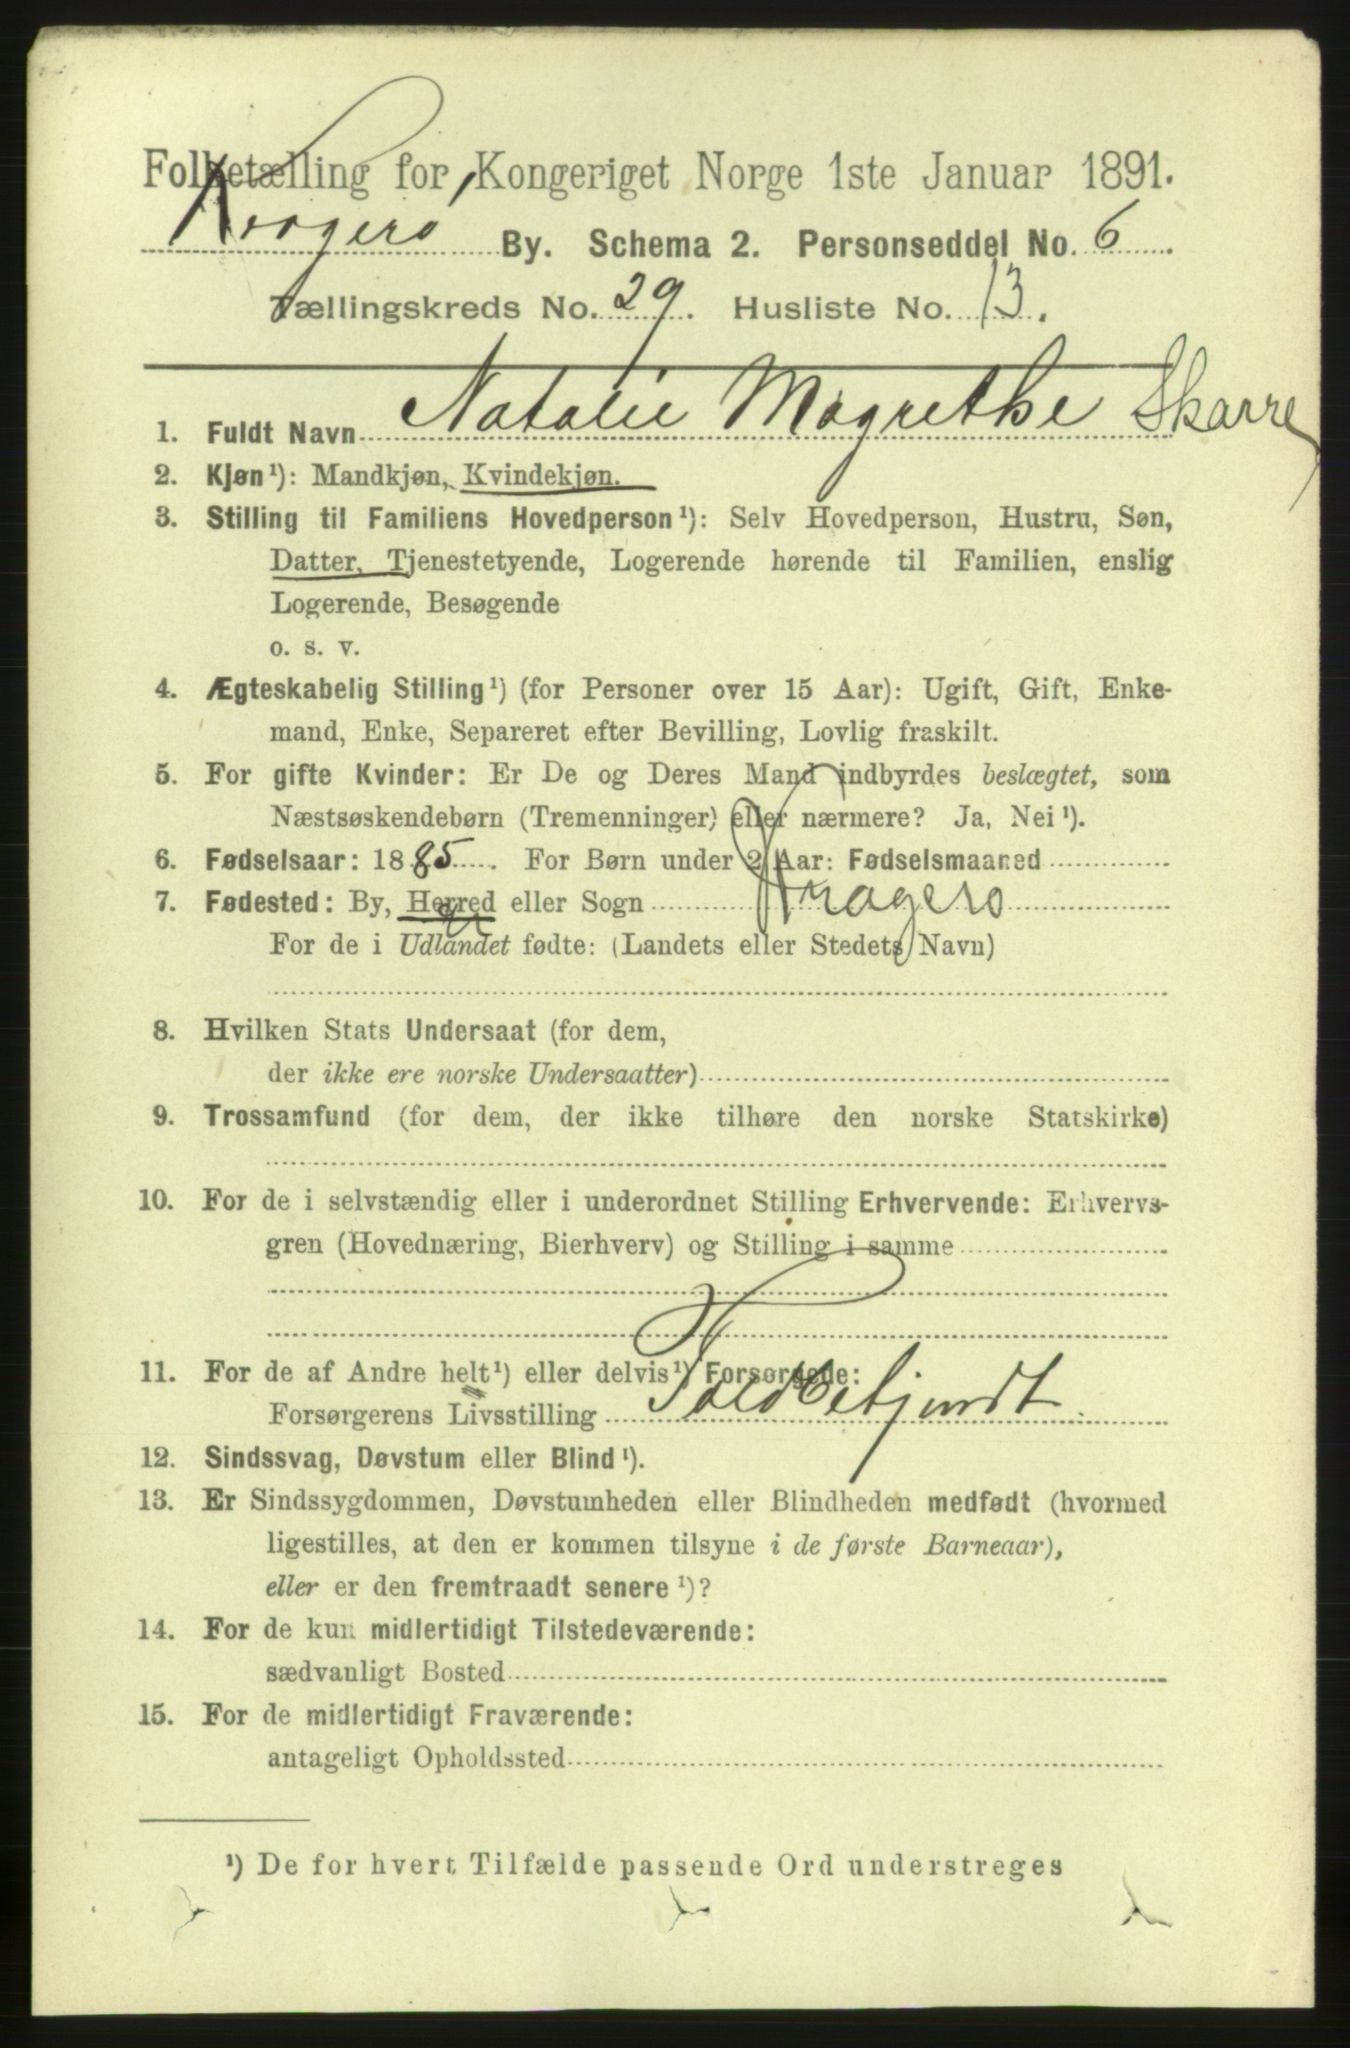 Folketælling for Kongeriget Norge 1ste Januar 1891.
Kragerø By. Schema 2. Personseddel No. 6.
Tællingskreds No. 29. Husliste No. 13.
1. Fuldt Navn Natalie Magrethe Skarre
2. Kjøn¹): Mandkjøn, Kvindekjøn.
3. Stilling til Familiens Hovedperson¹): Selv Hovedperson, Hustru, Søn,
Datter, Tjenestetyende, Logerende hørende til Familien, enslig
Logerende, Besøgende
o. s. v.
4. Ægteskabelig Stilling¹) (for Personer over 15 Aar): Ugift, Gift, Enke-
mand, Enke, Separeret efter Bevilling, Lovlig fraskilt.
5. For gifte Kvinder: Er De og Deres Mand indbyrdes beslægtet, som
Næstsøskendebørn (Tremenninger) eller nærmere? Ja, Nei¹).
6. Fødselsaar: 1885. For Børn under 2 Aar: Fødselsmaaned
7. Fødested: By, Herred eller Sogn Kragerø
For de i Udlandet fødte: (Landets eller Stedets Navn)
8. Hvilken Stats Undersaat (for dem,
der ikke ere norske Undersaatter)
9. Trossamfund (for dem, der ikke tilhøre den norske Statskirke)
10. For de i selvstændig eller i underordnet Stilling Erhvervende: Erhvervs-
gren (Hovednæring, Bierhverv) og Stilling i samme
11. For de af Andre helt¹) eller delvis¹) Forsørgede:
Forsørgerens Livsstilling Toldbetjendt
12. Sindssvag, Døvstum eller Blind¹).
13. Er Sindssygdommen, Døvstumheden eller Blindheden medfødt (hvormed
ligestilles, at den er kommen tilsyne i de første Barneaar),
eller er den fremtraadt senere¹)?
14. For de kun midlertidigt Tilstedeværende:
sædvanligt Bosted
15. For de midlertidigt Fraværende:
antageligt Opholdssted
¹) De for hvert Tilfælde passende Ord understreges